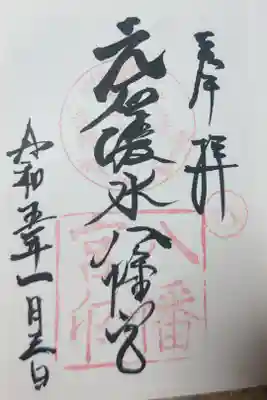 奉拝
元石清水八幡宮
八幡
宮印
令和五年一月三日